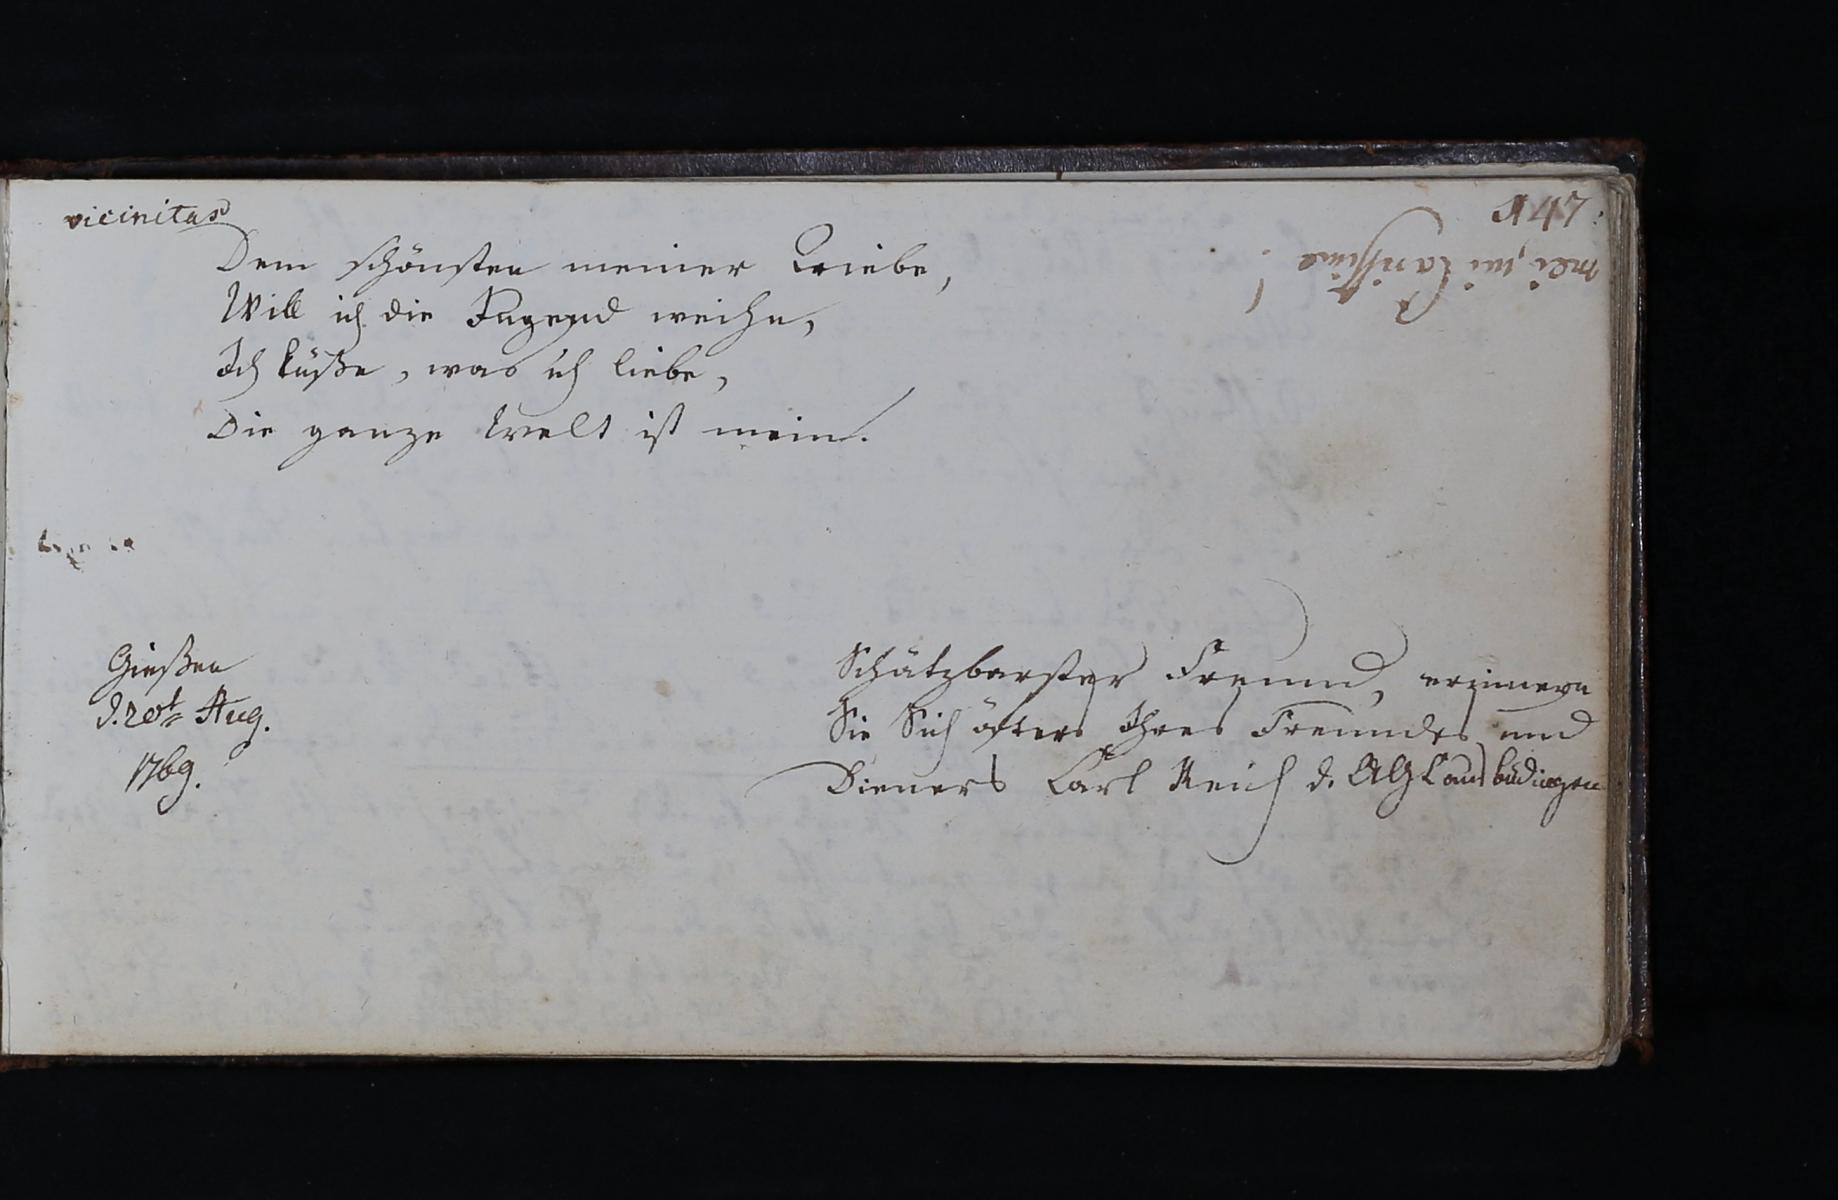 vicinitas
147.
mei, mi Carissime!
Dem schönsten meiner Triebe,
Will ich die Jugend weihn,
Ich küße, was ich liebe,
Die ganze Welt ist mein.
Gießen
d. 20t Aug.
1769.
Schätzbarster Freund, erinnern
Sie Sich öfters Ihres Freundes und
Dieners Carl Reich d. G G L aus büdingen